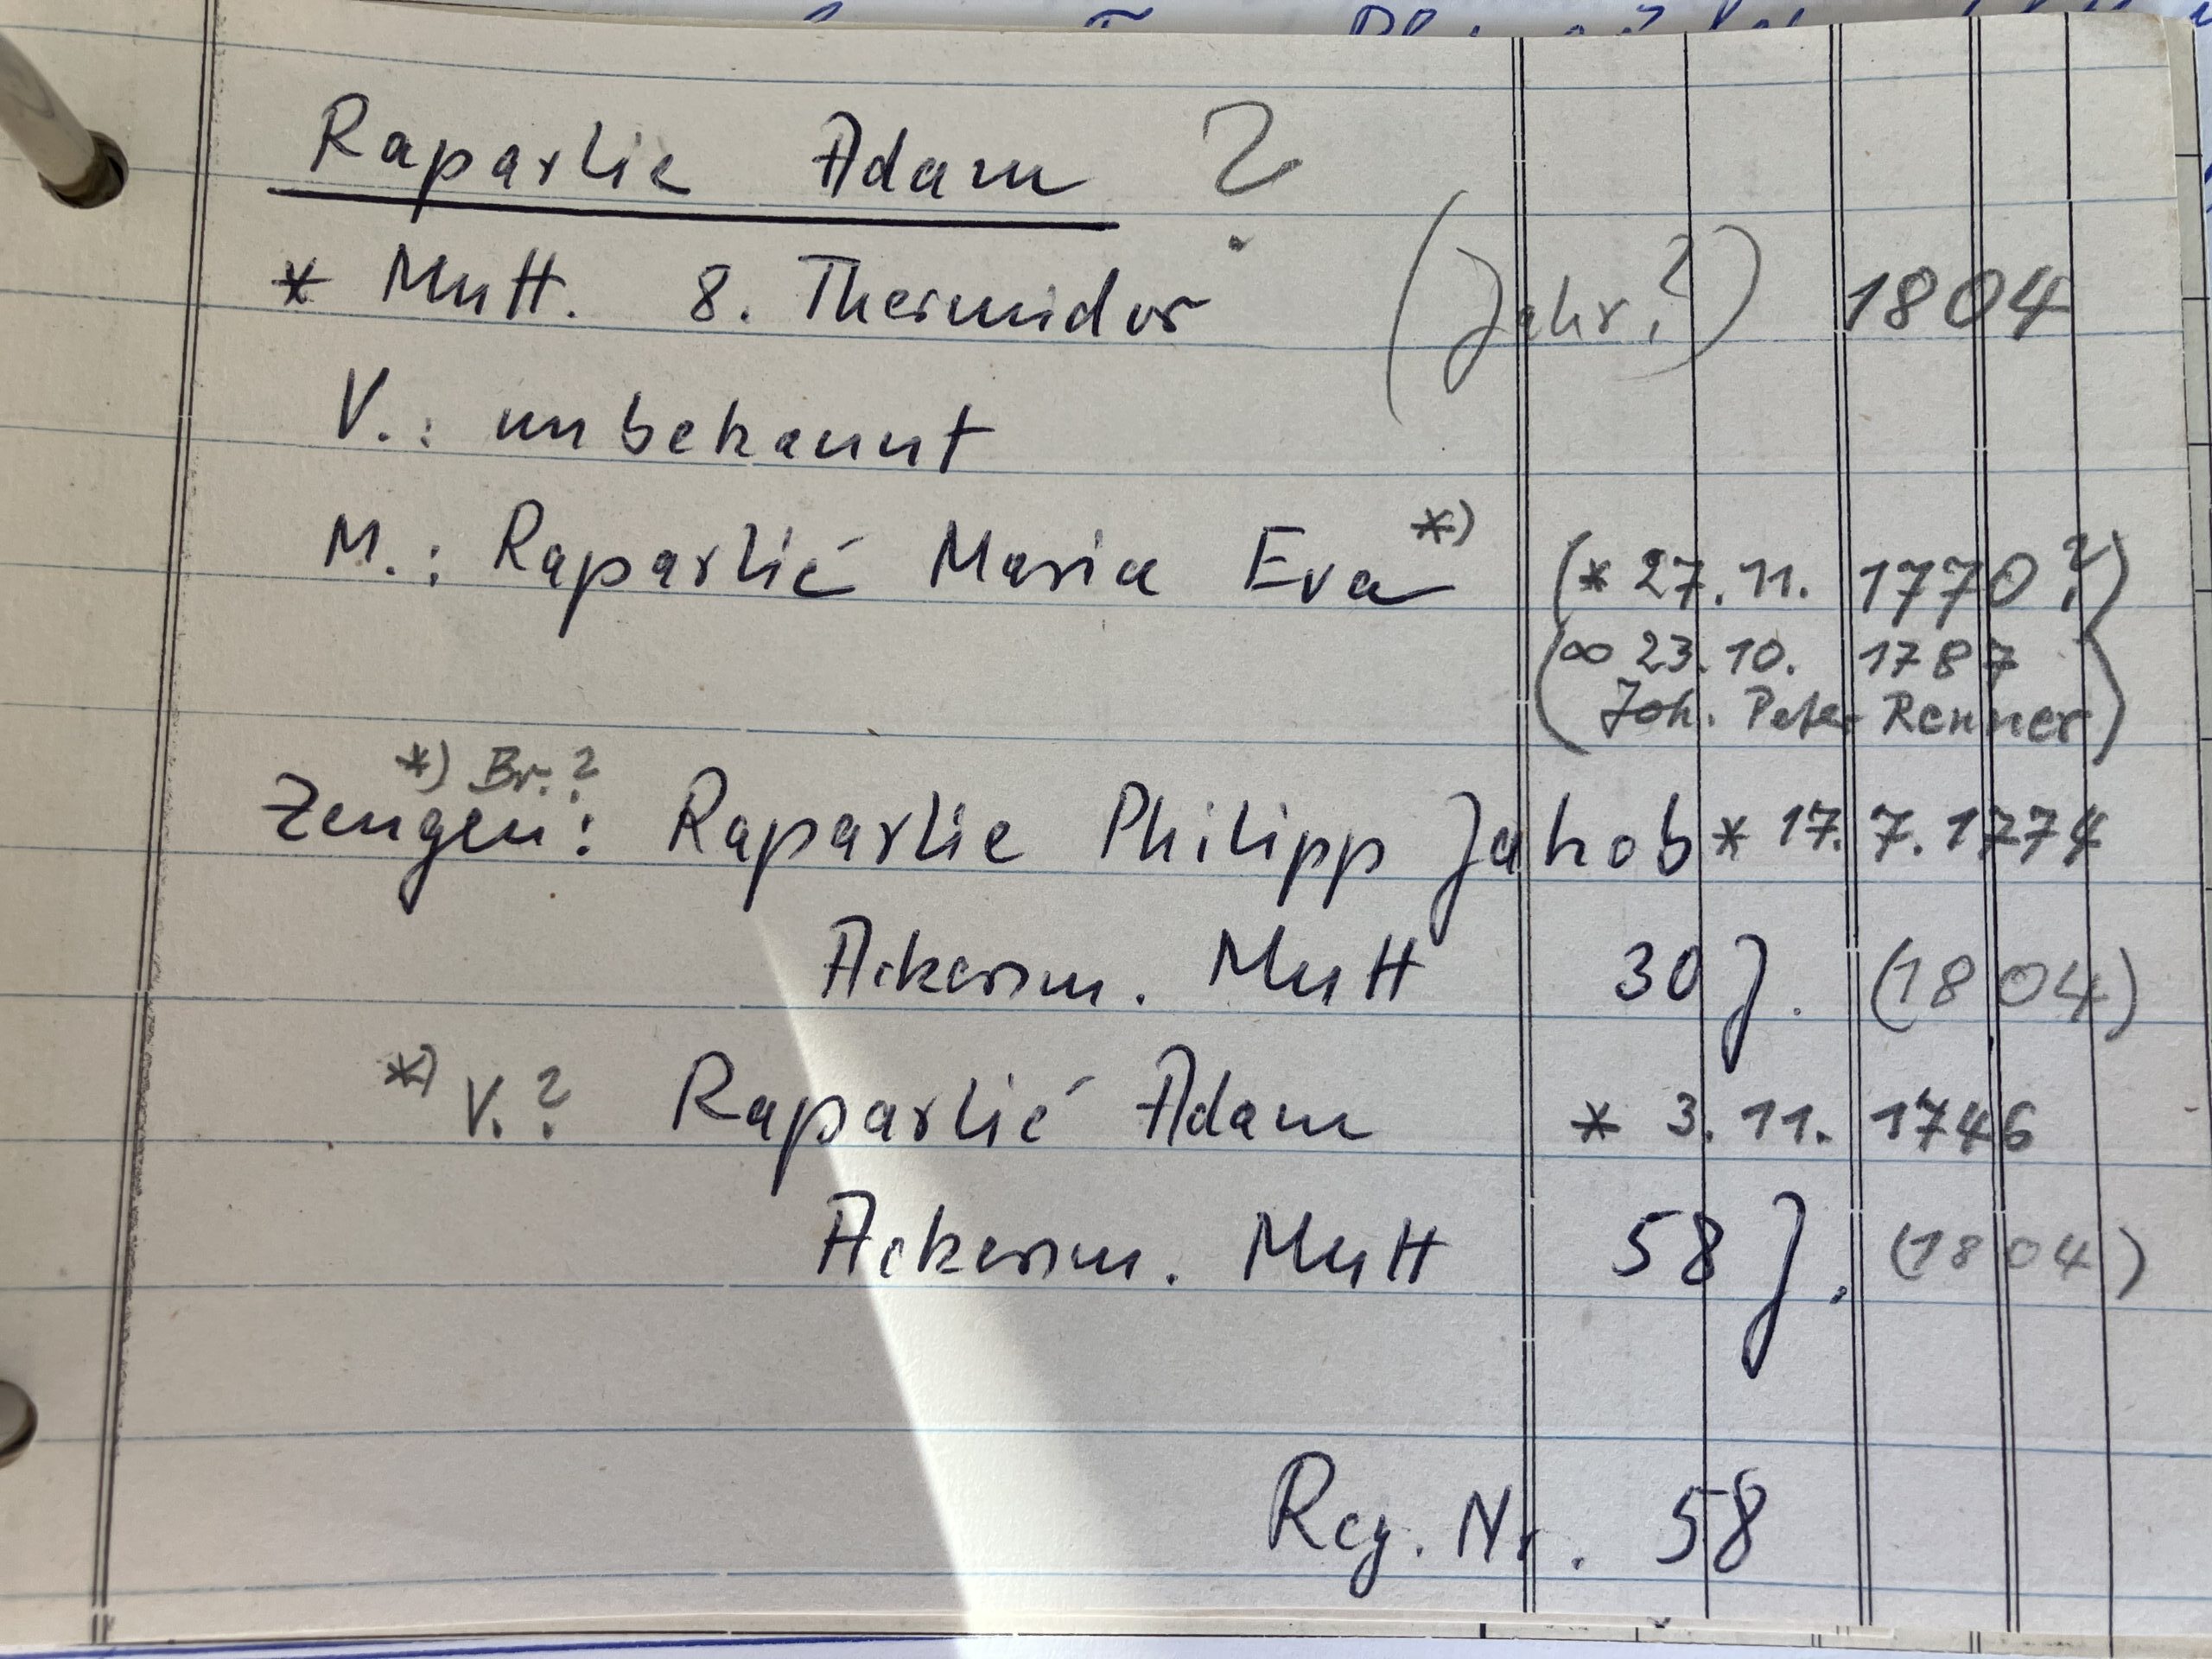 Raparlie Adam ?
* Mutt. 8. Thermidor (Jahr?) 1804
V.: unbekannt
M.: Raparlié Maria Eva *) (* 27. 11. 1770?)
(∞ 23. 10. 1787
Joh. Peter Renner)
*) Br.?
Zeugen: Raparlie Philipp Jakob * 17. 7. 1774
Ackersm. Mutt 30 J. (1804)
*) V.? Raparlié Adam * 3. 11. 1746
Ackersm. Mutt 58 J. (1804)
Reg. Nr. 58